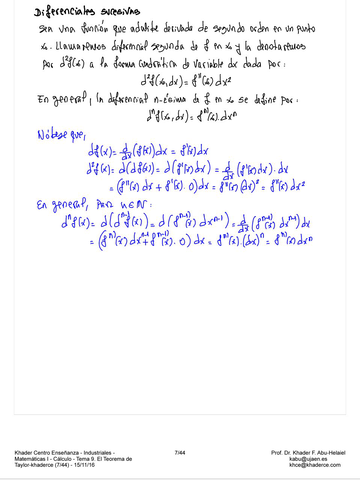 Diferenciales sucesivas
Sea una función que admite derivada de segundo orden en un punto
x₀. Llamaremos diferencial segunda de f en x₀ y la denotaremos
por d²f(x₀) a la forma cuadrática de variable dx dada por:
d²f(x₀,dx) = f''(x₀) dx²
En general, la diferencial n-ésima de f en x₀ se define por:
dⁿf(x₀,dx) = fⁿ⁾(x₀) dxⁿ
Nótese que,
df(x) = d/dx (f(x)) dx = f'(x) dx
d²f(x) = d(df(x)) = d(f'(x) dx) = d/dx (f'(x) dx) · dx
= (f''(x) dx + f'(x) · 0) dx = f''(x) (dx)² = f''(x) dx²
En general, para n∈ℕ:
dⁿf(x) = d(dⁿ⁻¹f(x)) = d(fⁿ⁻¹⁾(x) dxⁿ⁻¹) = d/dx (fⁿ⁻¹⁾(x) dxⁿ⁻¹) dx
= (fⁿ⁾(x) dxⁿ⁻¹ + fⁿ⁻¹⁾(x) · 0) dx = fⁿ⁾(x) · (dx)ⁿ = fⁿ⁾(x) dxⁿ
Khader Centro Enseñanza - Industriales -
Matemáticas I - Cálculo - Tema 9. El Teorema de
Taylor-khaderce (7/44) - 15/11/16
7/44
Prof. Dr. Khader F. Abu-Helaiel
kabu@ujaen.es
khce@khaderce.com